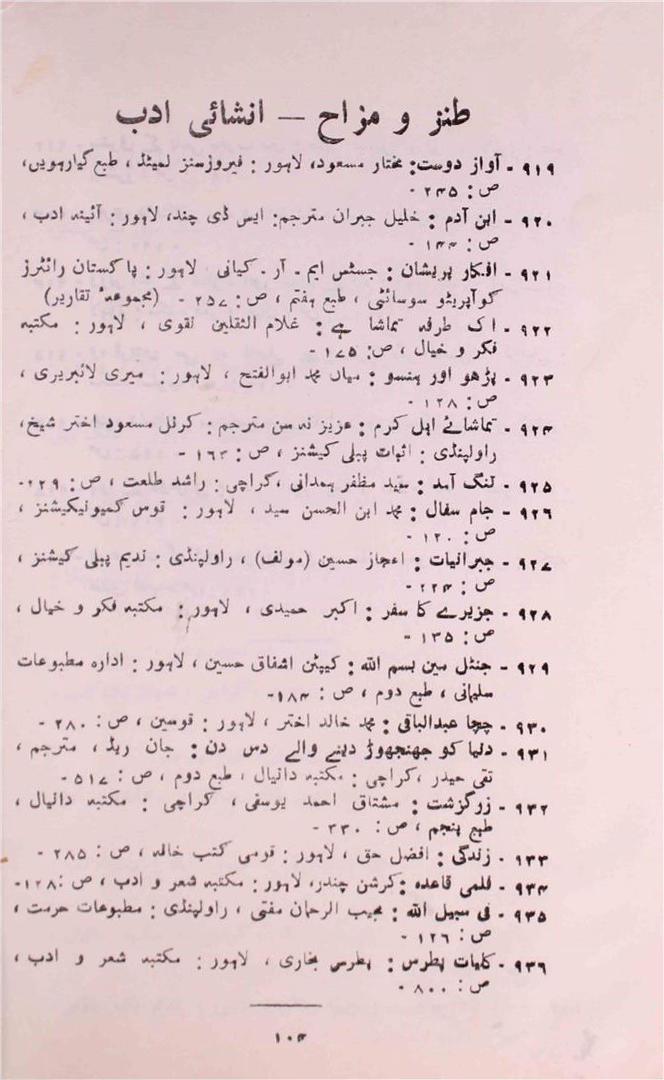 طنز و مزاح — انشائی ادب
۹۱۹ - آواز دوست: مختار مسعود، لاہور : فیروزسنز لمیٹڈ ، طبع گیارہویں،
ص : ۲۴۵ -
۹۲۰ - ابن آدم : خلیل جبران مترجم: ایس ڈی چند، لاہور : آئینہ ادب ،
ص : ۱۴۴ -
۹۲۱ - افکار پریشان : جسٹس ایم - آر - کیانی لاہور : پاکستان رائٹرز
کوآپریٹو سوسائٹی ، طبع ہفتم ، ص : ۲۵۷ - (مجموعۂ تقاریر)
۹۲۲ - اک طرفہ تماشا ہے : غلام الثقلین نقوی ، لاہور : مکتبہ
فکر و خیال ، ص: ۱۷۵ -
۹۲۳ - پڑھو اور ہنسو : میاں محمد ابوالفتح ، لاہور : میری لائبریری ،
ص : ۱۲۸ -
۹۲۴ - تماشائے اہل کرم : عزیز نہ سن مترجم : کرنل مسعود اختر شیخ،
راولپنڈی : اثبات پبلی کیشنز ، ص : ۱۶۴ -
۹۲۵ - تنگ آمد : سید مظفر ہمدانی ،کراچی : راشد طلعت ، ص : ۲۲۹-
۹۲۶ - جام سفال : محمد ابن الحسن سید ، لاہور : قوس کمیونیکیشنز ،
ص : ۱۲۰ -
۹۲۷ - جبرانیات : اعجاز حسین (مولف) ، راولپنڈی : ندیم پبلی کیشنز ،
ص : ۲۲۴ -
۹۲۸ - جزیرے کا سفر : اکبر حمیدی ، لاہور : مکتبہ فکر و خیال ،
ص : ۱۳۵ -
۹۲۹ - جنٹل مین بسم اللہ : کیپٹن اشفاق حسین ، لاہور : ادارہ مطبوعات
سلیمانی ، طبع دوم ، ص : ۱۸۴-
۹۳۰ - چچا عبدالباقی : محمد خالد اختر ، لاہور : قوسین ، ص : ۲۸۰ -
۹۳۱ - دنیا کو جھنجھوڑ دینے والے دس دن : جان ریڈ ، مترجم ،
تقی حیدر ،کراچی : مکتبہ دانیال ، طبع دوم ، ص : ۵۱۷ -
۹۳۲ - زرگزشت : مشتاق احمد یوسفی ، کراچی : مکتبہ دانیال ،
طبع پنجم ، ص : ۳۳۰ -
۹۳۳ - زندگی : افضل حق ، لاہور : قومی کتب خانہ ، ص : ۲۸۵ -
۹۳۴ - فلمی قاعدہ : کرشن چندر، لاہور : مکتبہ شعر و ادب ، ص :۱۲۸-
۹۳۵ - فی سبیل اللہ : مجیب الرحمان مفتی ، راولپنڈی : مطبوعات حرمت ،
ص : ۱۲۶ -
۹۳۶ - کلیات پطرس : پطرس بخاری ، لاہور : مکتبہ شعر و ادب ،
ص : ۸۰۰ -
۱۰۴